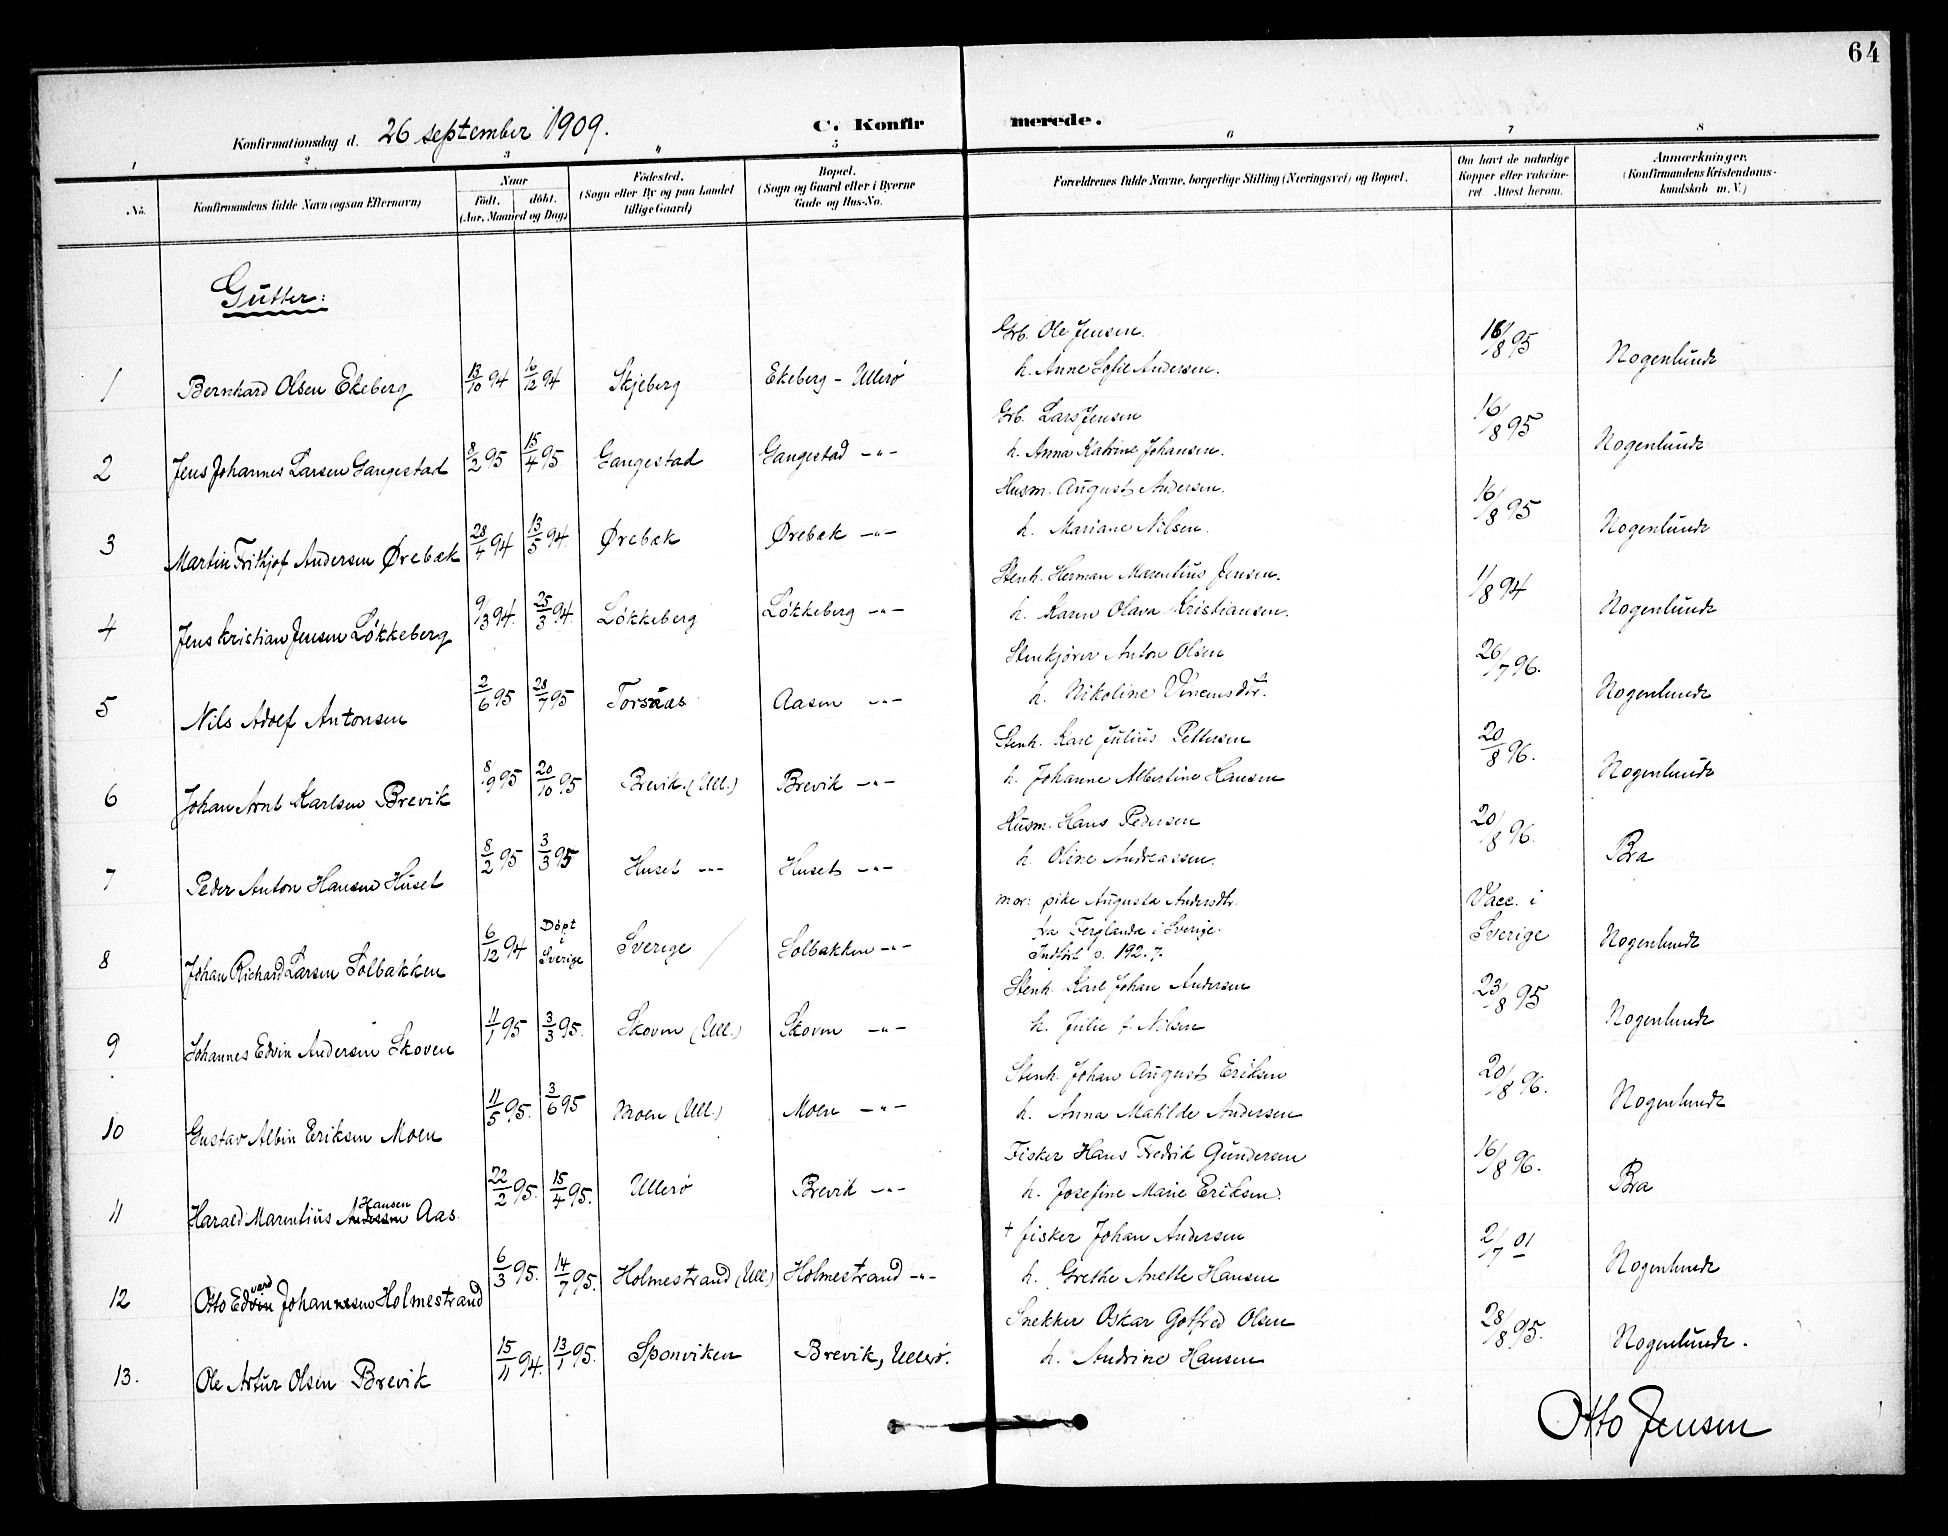 64
Konfirmationsdag d. 26 september 1909.
C. Konfirmerede.
1 2 3 " 5 6 7 8
No.
Konfirmandens fulde Navn (ogsaa Efternavn)
Naar
født. døbt.
(Aar, Maaned og Dag)
Fødested.
(Sogn eller By og paa Landet
tillige Gaard)
Bopæl.
(Sogn og Gaard eller i Byerne
Gade og Hus-No.
Forældrenes fulde Navne, borgerlige Stilling (Næringsvei) og Bopæl.
Om havt de naturlige
Kopper eller vakcine-
ret Attest herom.
Anmærkninger.
(Konfirmandens Kristendoms-
kundskab m. V.)
Gutter:
Grb. Ole Jensen.
1 Bernhard Olsen Ekeberg 13/10 94 16/12 94 Skjeberg Ekeberg - Ullerø h. Anne Sofie Andersen. 16/8 95 Nogenlunde
Grb. Lars Jensen
2 Jens Johannes Larsen Gangestad 8/2 95 15/4 95 Gangestad Gangestad -"- h. Anna Katrine Johansen. 16/8 95 Nogenlunde
Husm. August Andersen.
3 Martin Frithjof Andersen Ørebæk 28/4 94 13/5 94. Ørebæk Ørebæk -"- h. Mariane Nilsen. 16/8 95 Nogenlunde
Stenh. Herman Marentius Jensen.
4 Jens Kristian Jensen Løkkeberg 9/3 94. 25/3 94. Løkkeberg Løkkeberg -"- h. Karen Olava Kristiansen. 11/8 94 Nogenlunde
Stenkjører Anton Olsen
5 Nils Adolf Antonsen 2/6 95 28/7 95 Torsaas Aasen -"- h. Nikoline 26/7 96. Nogenlunde
Stenh. Karl Julius Pettersen
6 Johan Arnt Karlsen Brevik 8/9 95 20/10 95 Brevik. (Ull.) Brevik -"- h. Johanne Albertine Hansen 20/8 96. Nogenlunde
Husm. Hans Pedersen
7 Peder Anton Hansen Huset 8/2 95 3/3 95 Huset -"- Huset -"- h. Oline Andreassen. 20/8 96. Bra
mor: pike Augusta Andersdtr.
8 Johan Richard Larsen Solbakken 6/12 94 Døpt i Sverige Sverige Solbakken -"- fra Ferglanda i Sverige. Vacc. i Sverige Nogenlunde
Indført s. 192. 7.
Stenh. Karl Johan Andersen
9 Johannes Edvin Andersen Skoven 11/1 95 3/3 95. Skoven (Ull.) Skoven -"- h. Julie f. Nilsen 23/8 95 Nogenlunde
Stenh. Johan August Eriksen
10 Gustav Albin Eriksen Moen 11/5 95. 3/6 95 Moen (Ull.) Moen -"- h. Anna Matilde Andersen 20/8 96. Nogenlunde
Fisker Hans Fredrik Gundersen
11 Harald Marentius Andersen Hansen Aas. 22/2 95. 15/4 95. Ullerø Brevik -"- h. Josefine Marie Eriksen. 16/8 96. Bra
† fisker Johan Andersen
12 Otto Edvin vard Johannessen Holmestrand 6/3 95. 14/7 95. Holmestrand (Ull) Holmestrand -"- h. Grethe Anette Hansen 2/7 01 Nogenlunde
Snekker Oskar Gotfred Olsen
13. Ole Artur Olsen Brevik 15/11 94. 13/1 95. Sponviken Brevik, Ullerø. h. Andrine Hansen 28/8 95. Nogenlunde.
Otto Jensen